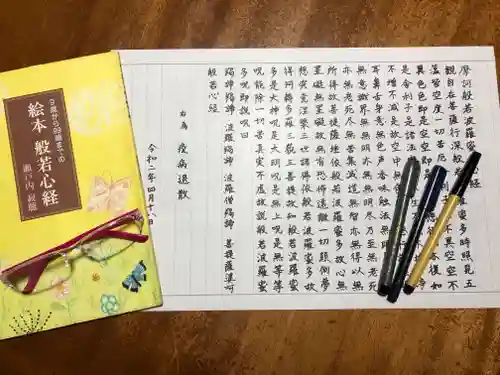 9歳から99歳までの
絵本 般若心経
瀬戸内 寂聴
摩訶般若波羅蜜 心経
観自在菩薩行深般 波羅蜜多時照見五
蘊皆空度一切苦厄 利子 不異空空不
異色色即是空空即是 復如
是舎利子是諸法
不増不減是故空中無
耳鼻舌身意無色声香味触法無眼
無意識界無無明亦無無明尽乃至無老死
亦無老死尽無苦集滅道無智亦無得以無
所得故菩提薩埵依般若波羅蜜多故心無
罣礙無罣礙故無有恐怖遠離一切顛倒夢
想究竟涅槃三世諸佛依般若波羅蜜多故
得阿耨多羅三藐三菩提故知般若波羅蜜
多是大神呪是大明呪是無上呪是無等等
呪能除一切苦真実不虚故説般若波羅蜜
多呪即説呪曰
羯諦羯諦 波羅羯諦 波羅僧羯諦 菩提薩婆訶
般若心経
右為 疫病退散
令和二年四月十八日